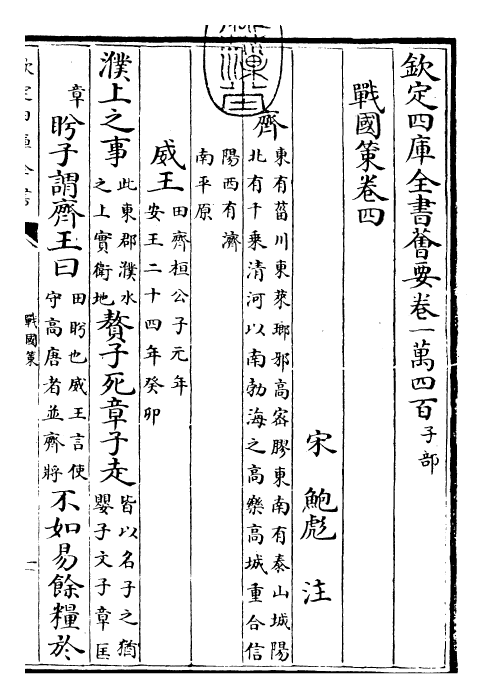 欽定四庫全書薈要卷一萬四百子部
戰國策卷四
宋 鮑彪 注
齊東有菑川東萊瑯邪高密膠東南有泰山城陽
北有千乘清河以南勃海之高樂高城重合信
陽西有濟
南平原
威王田齊桓公子元年
安王二十四年癸卯
濮上之事此東郡濮水
之上實衛地贅子死章子走皆以名子之猶
嬰子文子章匡
章盻子謂齊王曰田盻也威王言使
守高唐者並齊將不如易餘糧於
戰國策
一